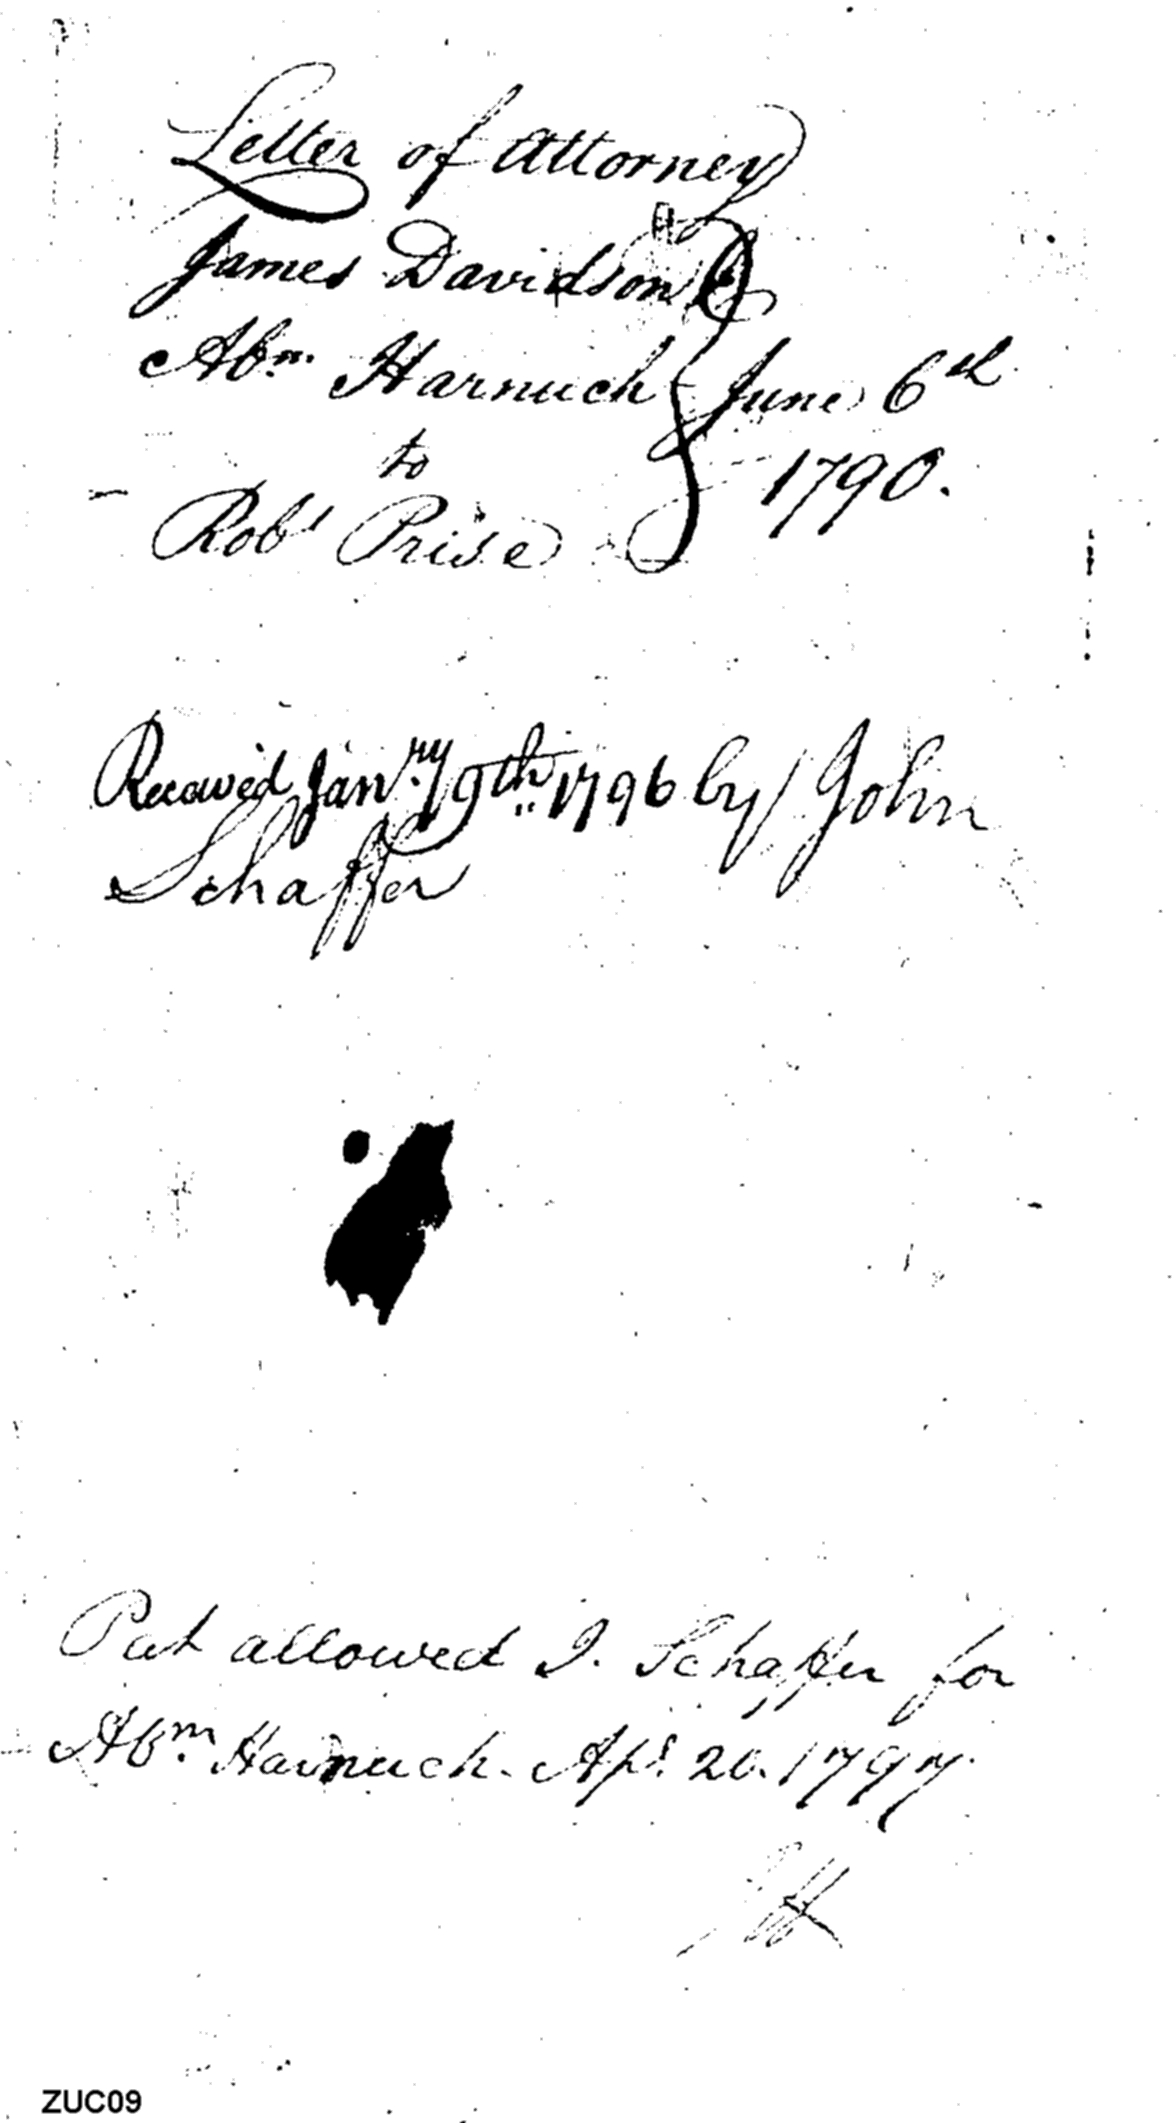 Letter of Attorney
James Davidson &
Abm. Harnuch
to
Robt Prise
June 6th
1790.
Received Janry 9th 1796 by John
Schaffer
Pat allowed J. Schaffer for
Abm. Harnuch. Apl. 20. 1797.
ZUC09